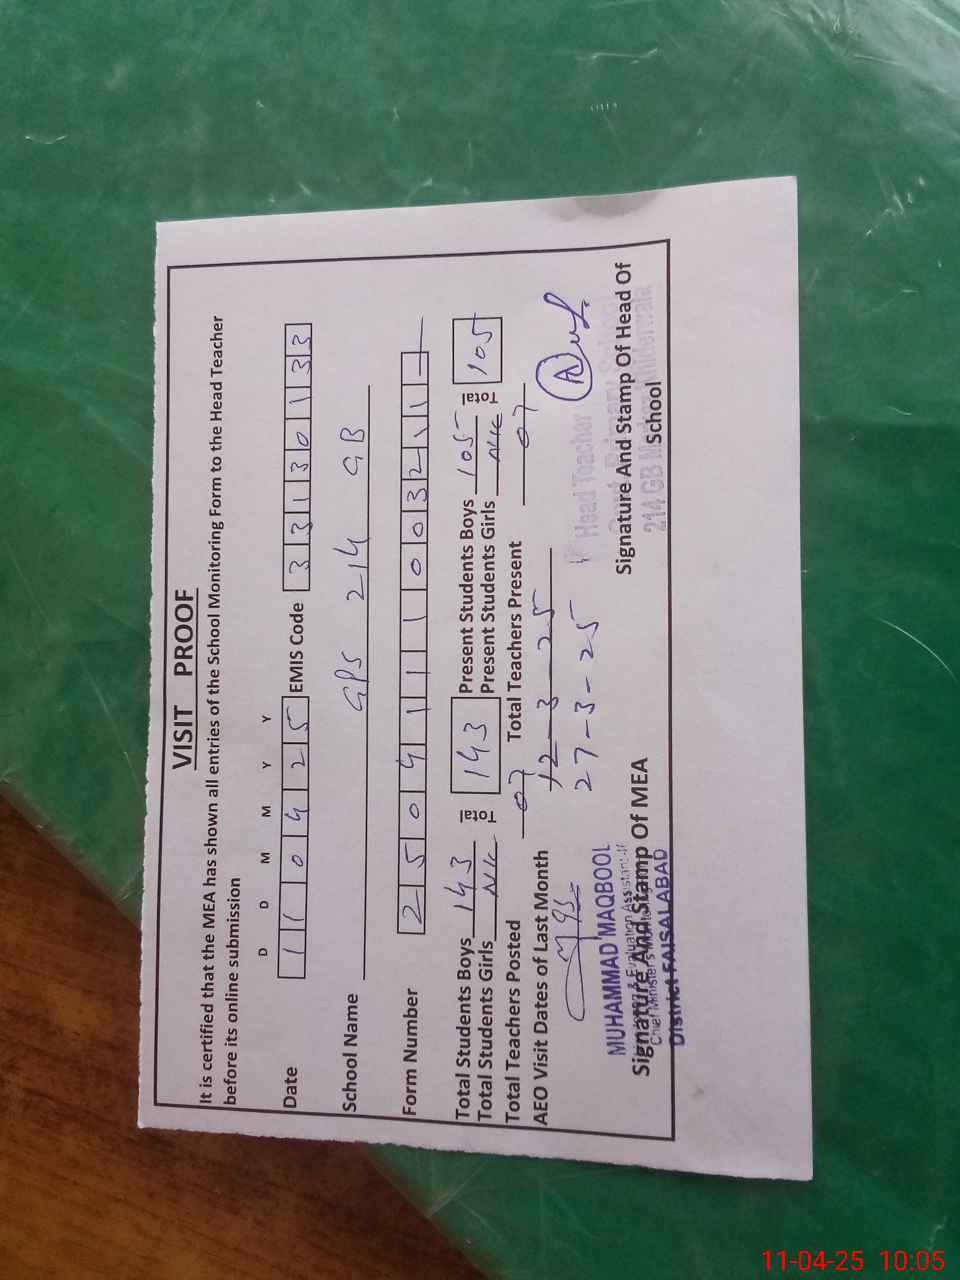 VISIT PROOF
It is certified that the MEA has shown all entries of the School Monitoring Form to the Head Teacher
before its online submission
D D M M Y Y
Date 1 1 0 4 2 5 EMIS Code 3 3 1 3 0 1 3 3
School Name GPS 214 GB
Form Number 2 5 0 4 1 1 1 0 0 3 2 1 1 -
Total Students Boys 143 Total 143 Present Students Boys 105 Total 105
Total Students Girls Nil Present Students Girls Nil
Total Teachers Posted 07 Total Teachers Present 07
AEO Visit Dates of Last Month 12-3-25
27-3-25
MUHAMMAD MAQBOOL
& Evaluation Assistant
Chief Minister's
District FAISALABAD
Signature And Stamp Of MEA
Head Teacher
Govt. Primary School
214 GB
Signature And Stamp Of Head Of
School
11-04-25 10:05